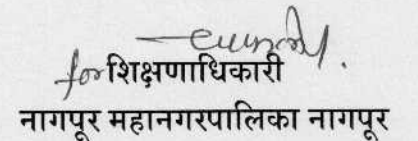 for शिक्षणाधिकारी
नागपूर महानगरपालिका नागपूर